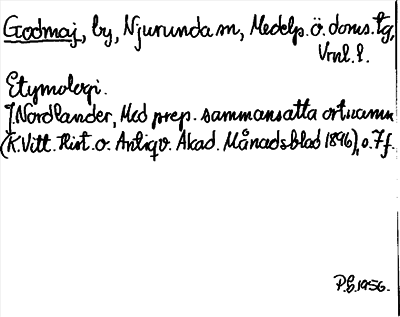 Godmaj, by, Njurunda sn, Medelp. ö. doms. tg,
Vrnl. l.
Etymologi.
J. Nordlander, Med prep. sammansatta ortnamn
(K. Vitt. Hist. o. Antiqv. Akad. Månadsblad 1896), s. 7 f.
1956.